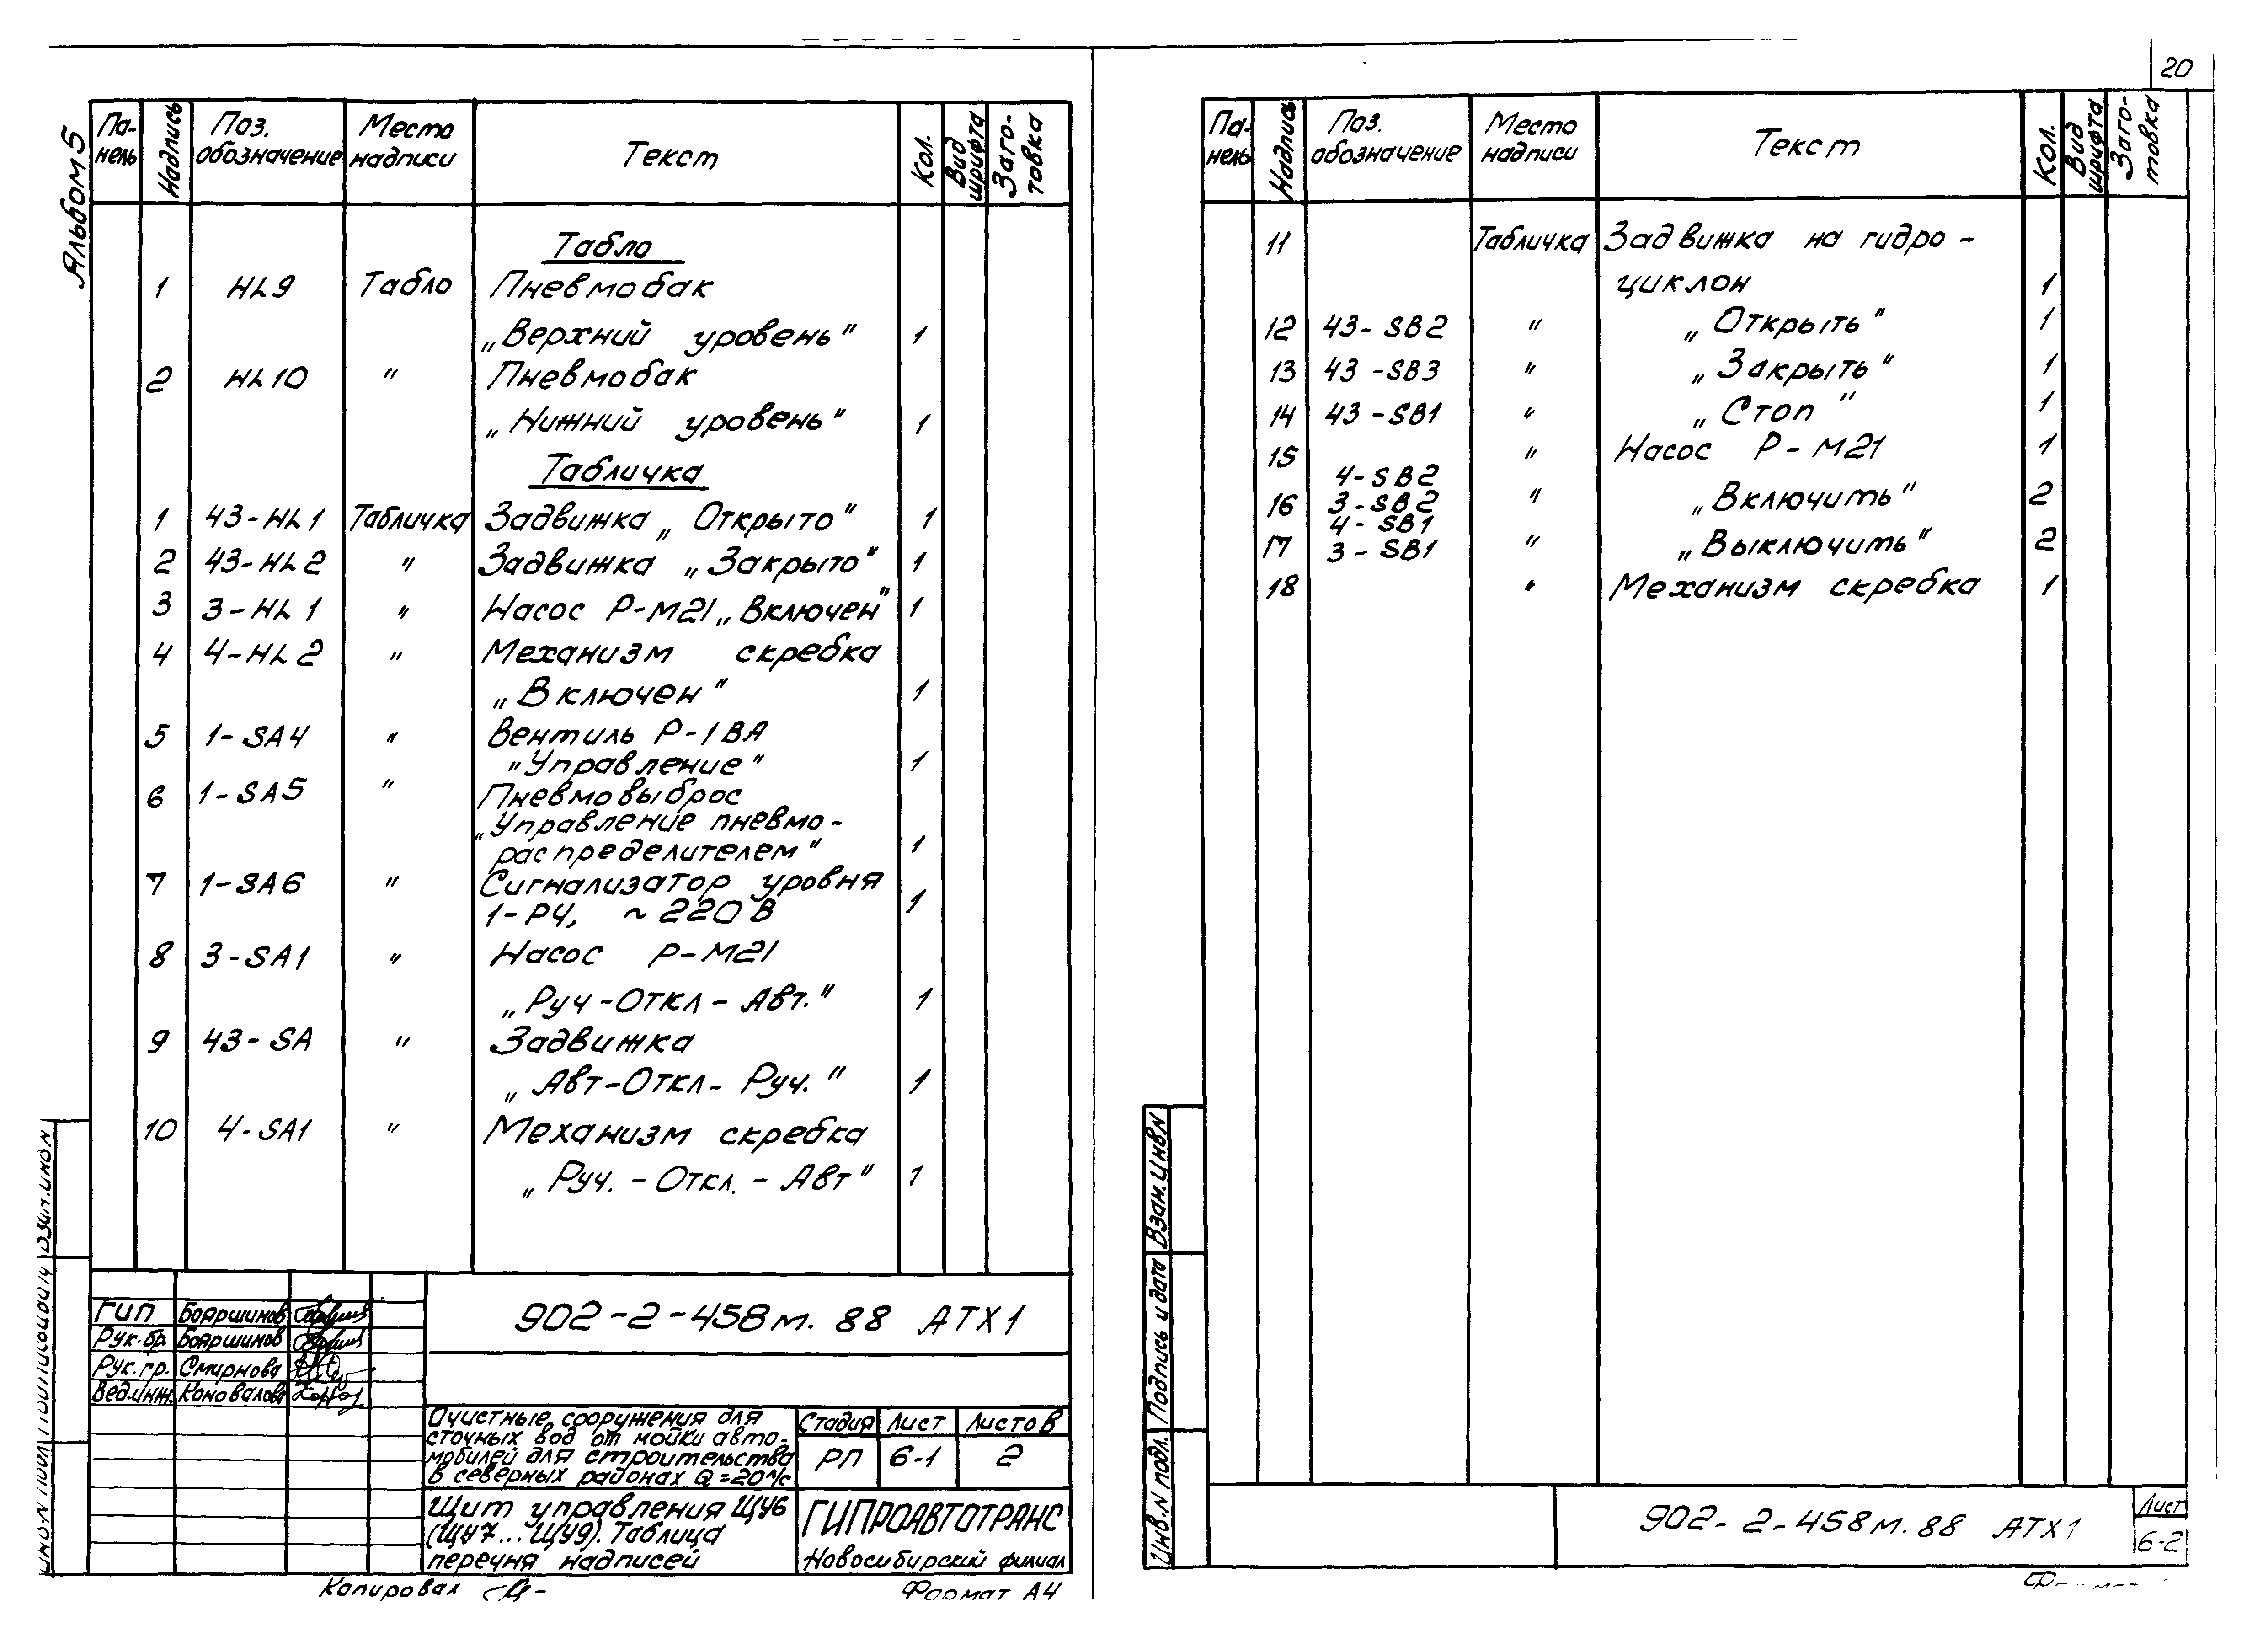 20
Альбом 5
Па-нель Надпись Поз. обозначение Место надписи Текст Кол. Вид шрифта Заго-товка
Табло
1 HL9 Табло Пневмобак
„Верхний уровень" 1
2 HL10 " Пневмобак
„Нижний уровень" 1
Табличка
1 43-HL1 Табличка Задвижка „Открыто" 1
2 43-HL2 " Задвижка „Закрыто" 1
3 3-HL1 " Насос Р-М21 „Включен" 1
4 4-HL2 " Механизм скребка
„Включен" 1
5 1-SA4 " Вентиль Р-1ВА
"Управление" 1
6 1-SA5 " Пневмовыброс
„Управление пневмо-
распределителем" 1
7 1-SA6 " Сигнализатор уровня
1-РУ, ~220В 1
8 3-SA1 " Насос Р-М21
„Руч-Откл-Авт." 1
9 43-SA " Задвижка
„Авт-Откл-Руч." 1
10 4-SA1 " Механизм скребка
„Руч.-Откл.-Авт" 1
ГИП Бояршинов
Рук.бр. Бояршинов
Рук.гр. Смирнова
Вед.инж. Коновалова
902-2-458м.88 АТХ1
Очистные сооружения для
сточных вод от мойки авто-
мобилей для строительства
в северных районах Q=20л/с
Стадия Лист Листов
РП 6-1 2
Щит управления ЩУ6
(ЩУ7...ЩУ9). Таблица
перечня надписей
ГИПРОАВТОТРАНС
Новосибирский филиал
Копировал
Формат А4
Па-нель Надпись Поз. обозначение Место надписи Текст Кол. Вид шрифта Заго-товка
11 Табличка Задвижка на гидро-
циклон 1
12 43-SB2 " „Открыть" 1
13 43-SB3 " „Закрыть" 1
14 43-SB1 " „Стоп" 1
15 " Насос Р-М21 1
4-SB2
16 3-SB2 " „Включить" 2
4-SB1
17 3-SB1 " „Выключить" 2
18 " Механизм скребка 1
Взам.инв.N
Подпись и дата
Инв.N подл.
902-2-458м.88 АТХ1
Лист
6-2